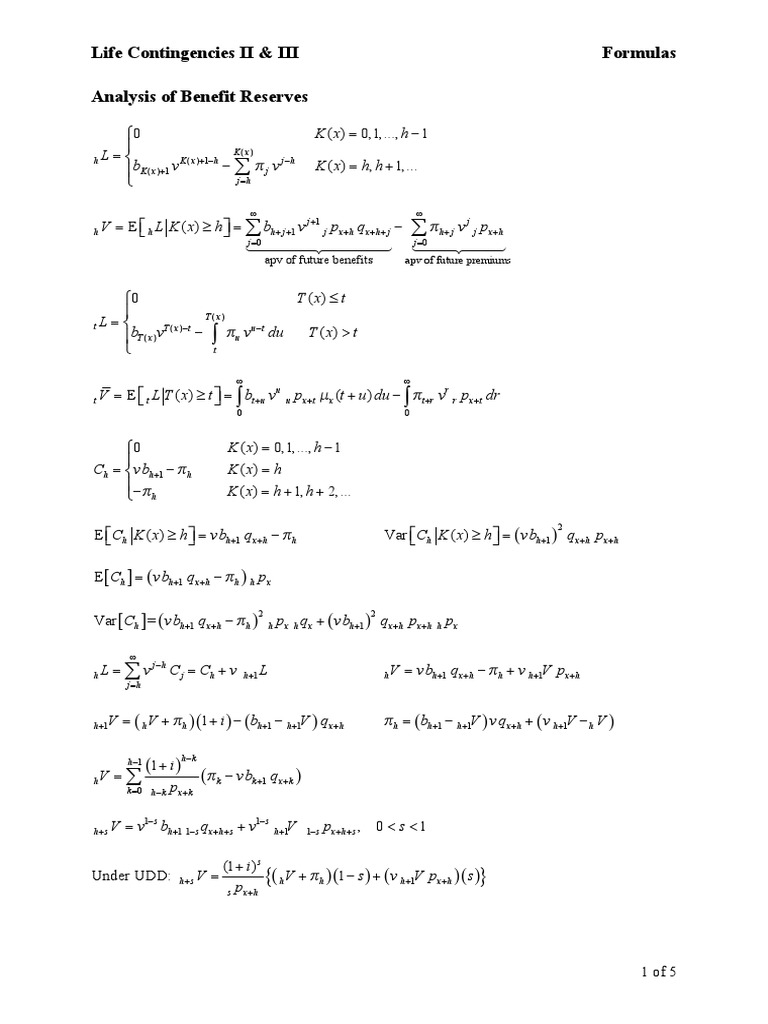 Life Contingencies II & III Formulas
Analysis of Benefit Reserves
ₕL = { 0 K(x) = 0,1,...,h−1
b_{K(x)+1} v^{K(x)+1−h} − ∑_{j=h}^{K(x)} π_j v^{j−h} K(x) = h, h+1,...
ₕV = E[ₕL|K(x) ≥ h] = ∑_{j=0}^{∞} b_{h+j+1} v^{j+1} _j p_{x+h} q_{x+h+j} − ∑_{j=0}^{∞} π_{h+j} v^j _j p_{x+h}
apv of future benefits apv of future premiums
_t L = { 0 T(x) ≤ t
b_{T(x)} v^{T(x)−t} − ∫_t^{T(x)} π_u v^{u−t} du T(x) > t
_t V̅ = E[_t L|T(x) ≥ t] = ∫_0^∞ b_{t+u} v^u _u p_{x+t} μ_x(t+u) du − ∫_0^∞ π_{t+r} v^r _r p_{x+t} dr
C_h = { 0 K(x) = 0,1,...,h−1
vb_{h+1} − π_h K(x) = h
−π_h K(x) = h+1, h+2,...
E[C_h|K(x) ≥ h] = vb_{h+1} q_{x+h} − π_h Var[C_h|K(x) ≥ h] = (vb_{h+1})² q_{x+h} p_{x+h}
E[C_h] = (vb_{h+1} q_{x+h} − π_h) _h p_x
Var[C_h]=(vb_{h+1} q_{x+h} − π_h)² _h p_x _h q_x + (vb_{h+1})² q_{x+h} p_{x+h} _h p_x
_h L = ∑_{j=h}^{∞} v^{j−h} C_j = C_h + v _{h+1}L _h V = vb_{h+1} q_{x+h} − π_h + v _{h+1}V p_{x+h}
_{h+1}V = (_h V + π_h)(1+i) − (b_{h+1} − _{h+1}V) q_{x+h} π_h = (b_{h+1} − _{h+1}V) vq_{x+h} + (v _{h+1}V − _h V)
_h V = ∑_{k=0}^{h−1} (1+i)^{h−k} / _{h−k}p_{x+k} (π_k − vb_{k+1} q_{x+k})
_{h+s}V = v^{1−s} b_{h+1} _{1−s}q_{x+h+s} + v^{1−s} _{h+1}V _{1−s}p_{x+h+s}, 0 < s < 1
Under UDD: _{h+s}V = (1+i)^s / _s p_{x+h} {(_h V + π_h)(1−s) + (v _{h+1}V p_{x+h})(s)}
1 of 5